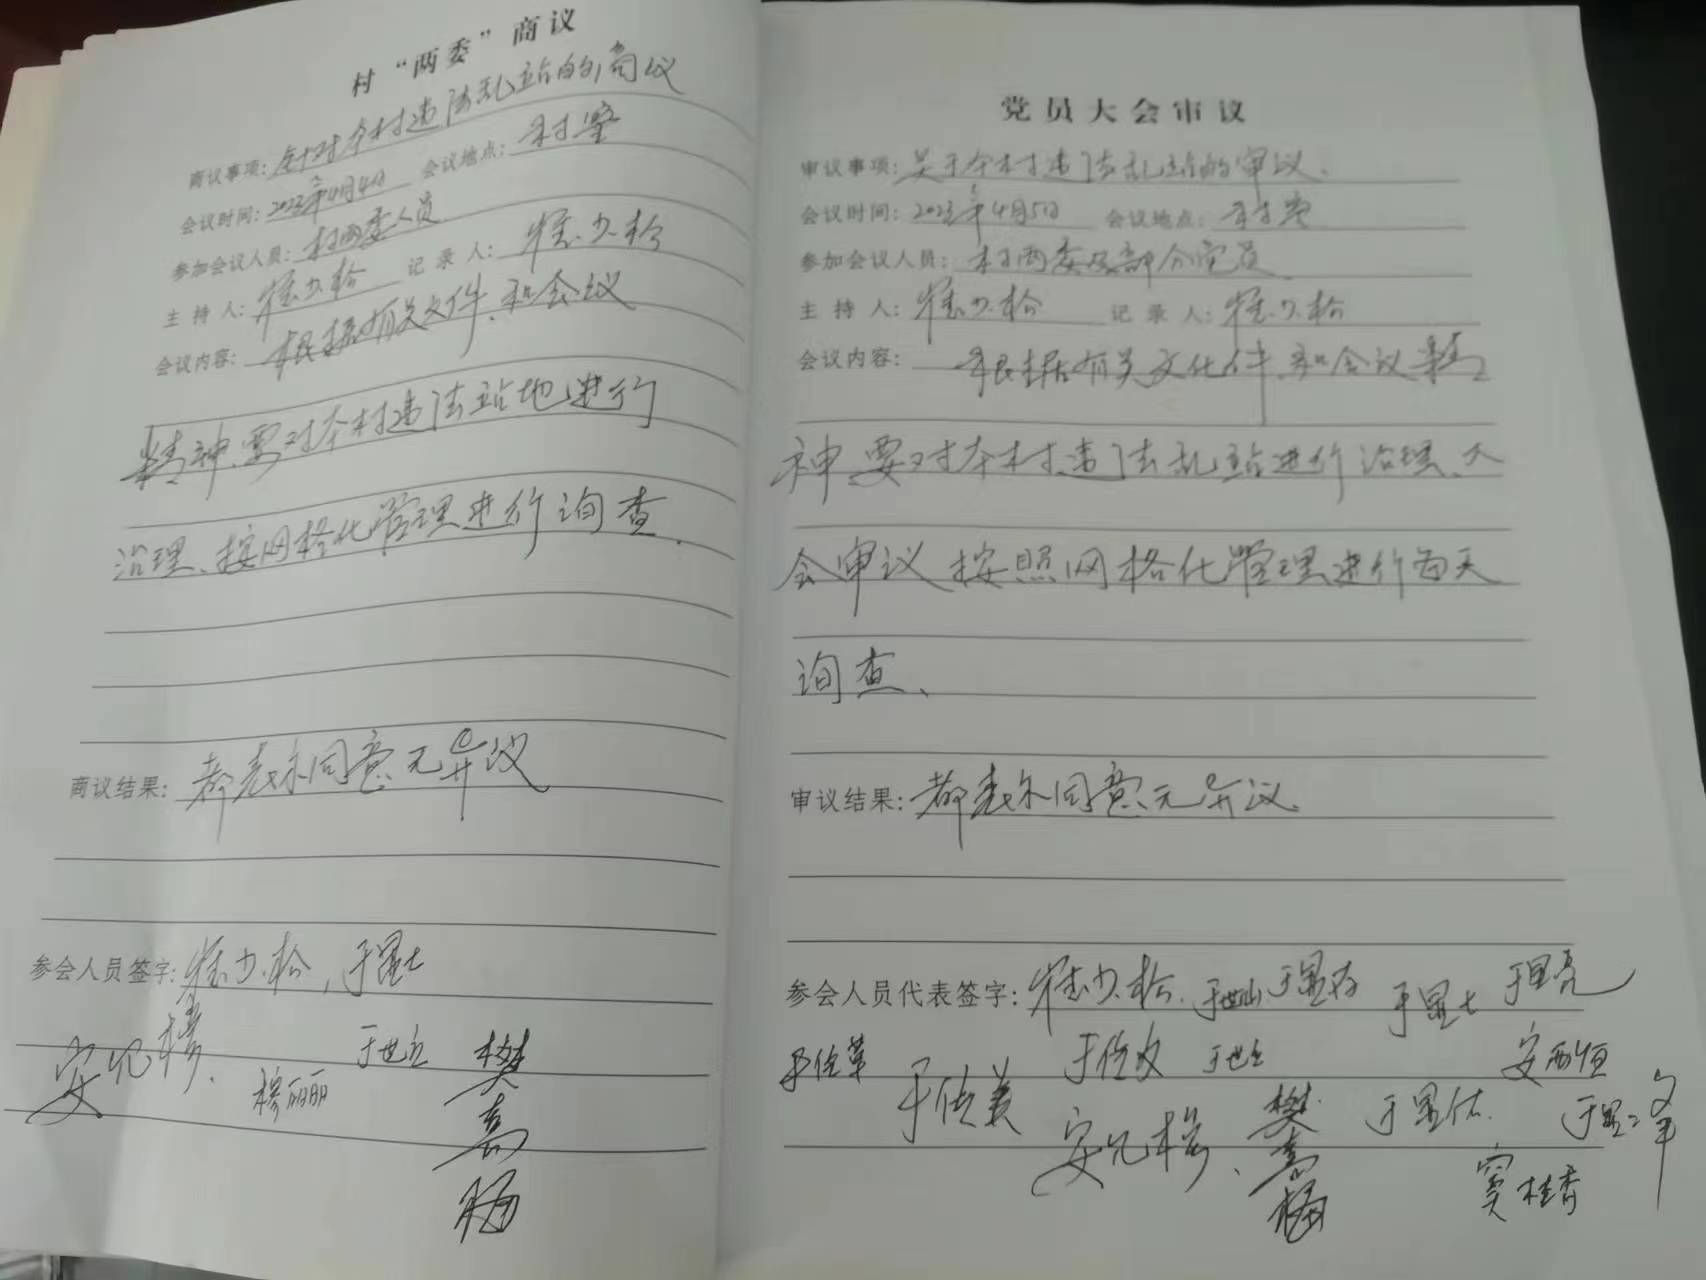 村“两委”商议
商议事项：针对本村违法乱占的商议
会议时间：2023年4月4日 会议地点：村室
参加会议人员：村两委人员
主持人： 记录人：
会议内容：根据有关文件、和会议
精神、要对本村违法占地进行
治理、按网格化管理进行询查.
商议结果：都表示同意无异议
参会人员签字：
于世
穆丽丽
党员大会审议
审议事项：关于本村违法乱占的审议、
会议时间：2023年4月5日 会议地点：村室
参加会议人员：村两委及部分党员
主持人： 记录人：
会议内容：根据有关文化件、和会议精
神要对本村违法乱占进行治理、大
会审议按照网格化管理进行每天
询查、
审议结果：都表示同意无异议.
参会人员代表签字：
窦桂香